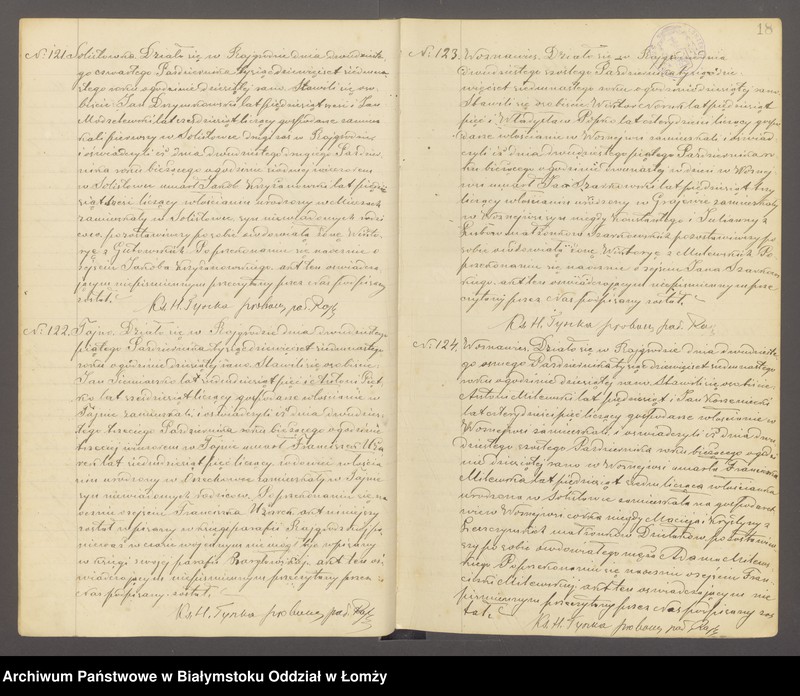 No 121. Sołistówka. Działo się w Rajgrodzie dnia dwudziestego
czwartego Października tysiąc dziewięćset siedmna-
stego roku o godzinie dziesiątej rano. Stawili się oso-
biście Jan lat pięćdziesiąt i Jan
lat sześćdziesiąt liczący gospodarze zamie-
szkali pierwszy w Sołistówce drugi zaś w Rajgrodzie
i oświadczyli iż dnia dwudziestego drugiego Paździer-
nika roku bieżącego o godzinie siódmej wieczorem
w Sołistówce umarł Jakób lat
liczący włościanin urodzony w
zamieszkały w Sołistówce, syn niewiadomych rodzi-
ców, pozostawiwszy po sobie owdowiałą żonę Wikto-
ryę z Po przekonaniu się naocznie o
zejściu Jakóba akt ten oświadcza-
jącym niepiśmiennym przeczytany przez Nas podpisany
został.
Ks. H. Tyszka proboszcz par. Rajg.
No 122. Tajno. Działo się w Rajgrodzie dnia dwudziestego
piątego Października tysiąc dziewięćset siedmnastego
roku o godzinie dziesiątej rano. Stawili się osobiście
Jan lat siedmdziesiąt pięć i Antoni
lat sześćdziesiąt liczący gospodarze włościanie w
Tajnie zamieszkali i oświadczyli iż dnia dwudzies-
tego trzeciego Października roku bieżącego o godzinie
trzeciej wieczorem w Tajnie umarł Franciszek
lat siedmdziesiąt pięć liczący, włościa-
nin urodzony w zamieszkały w Tajnie
syn niewiadomych rodziców. Po przekonaniu się na-
ocznie o zejściu Franciszka akt niniejszy
został wpisany w księgi parafii Rajgrodzkiej, po-
nieważ w czasie wojennym nie mógł być wpisany
w księgi swojej parafii akt ten oś-
wiadczającym niepiśmiennym przeczytany przez
Nas podpisany został.
Ks. H. Tyszka proboszcz par. Rajg.
18
No 123. Woźnawieś. Działo się w Rajgrodzie dnia
dwudziestego szóstego Października tysiąc dzie-
więćset siedmnastego roku o godzinie dziesiątej rano.
Stawili się osobiście lat pięćdziesiąt
pięć i Władysław lat czterdzieści liczący gospo-
darze włościanie w Woźnejwsi zamieszkali i oświad-
czyli iż dnia dwudziestego piątego Października ro-
ku bieżącego o godzinie dwunastej w dzień w Woźnej-
wsi umarł Jan lat pięćdziesiąt trzy
liczący włościanin urodzony w Grajewie zamieszkały
w Woźnejwsi syn niegdy Konstantego i
małżonków pozostawiwszy po
sobie owdowiałą żonę Wiktoryę z Po
przekonaniu się naocznie o zejściu Jana
akt ten oświadczającym niepiśmiennym prze-
czytany przez Nas podpisany został.
Ks. H. Tyszka proboszcz par. Rajg.
No 124. Woźnawieś. Działo się w Rajgrodzie dnia dwudzieste-
go ósmego Października tysiąc dziewięćset siedmnastego
roku o godzinie dziesiątej rano. Stawili się osobiście
Antoni Milewski lat pięćdziesiąt i Jan
lat czterdzieści pięć liczący gospodarze włościanie w
Woźnejwsi zamieszkali i oświadczyli iż dnia dwu-
dziestego szóstego Października roku bieżącego o godzi-
nie dziesiątej rano w Woźnejwsi umarła Franciszka
Milewska lat pięćdziesiąt siedm licząca włościanka
urodzona w Sołistówce zamieszkała na gospodarst-
wie w Woźnejwsi córka niegdy Macieja i Krystyny z
małżonków pozostawiw-
szy po sobie owdowiałego męża Adama Milew-
skiego. Po przekonaniu się naocznie o zejściu Fran-
ciszki Milewskiej akt ten oświadczającym nie
piśmiennym przeczytany przez Nas podpisany zos-
tał.
Ks. H. Tyszka proboszcz par. Rajg.
Archiwum Państwowe w Białymstoku Oddział w Łomży